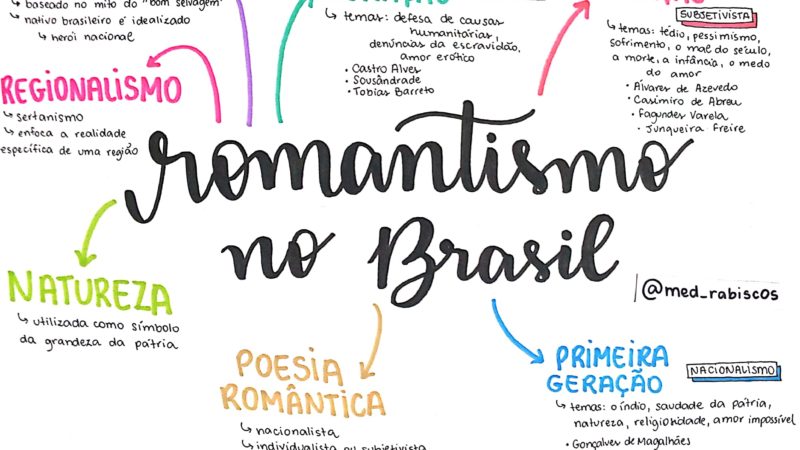 ↳ baseado no mito do "bom selvagem"
↳ nativo brasileiro é idealizado
↳ herói nacional
REGIONALISMO
↳ sertanismo
↳ enfoca a realidade
específica de uma região
↳ temas: defesa de causas
humanitárias,
denúncias da escravidão,
amor erótico
• Castro Alves
• Sousândrade
• Tobias Barreto
SUBJETIVISTA
↳ temas: tédio, pessimismo,
sofrimento, o mal do século,
a morte, a infância, o medo
do amor
• Álvares de Azevedo
• Casimiro de Abreu
• Fagundes Varela
• Junqueira Freire
romantismo
no Brasil
@med_rabiscos
NATUREZA
↳ utilizada como símbolo
da grandeza da pátria
POESIA
ROMÂNTICA
↳ nacionalista
↳ individualista ou subjetivista
PRIMEIRA
GERAÇÃO
NACIONALISMO
↳ temas: o índio, saudade da pátria,
natureza, religiosidade, amor impossível
• Gonçalves de Magalhães